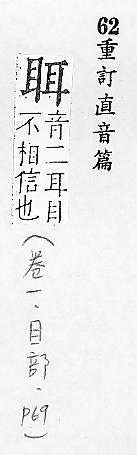 62重訂直音篇
眲
音二耳目
不相信也
(卷一·目部·P69)